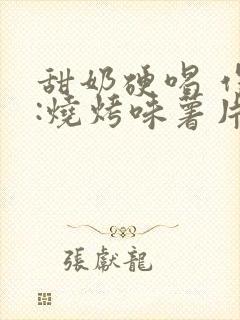 甜奶硬唱
:燒烤味薯片
張獻龍